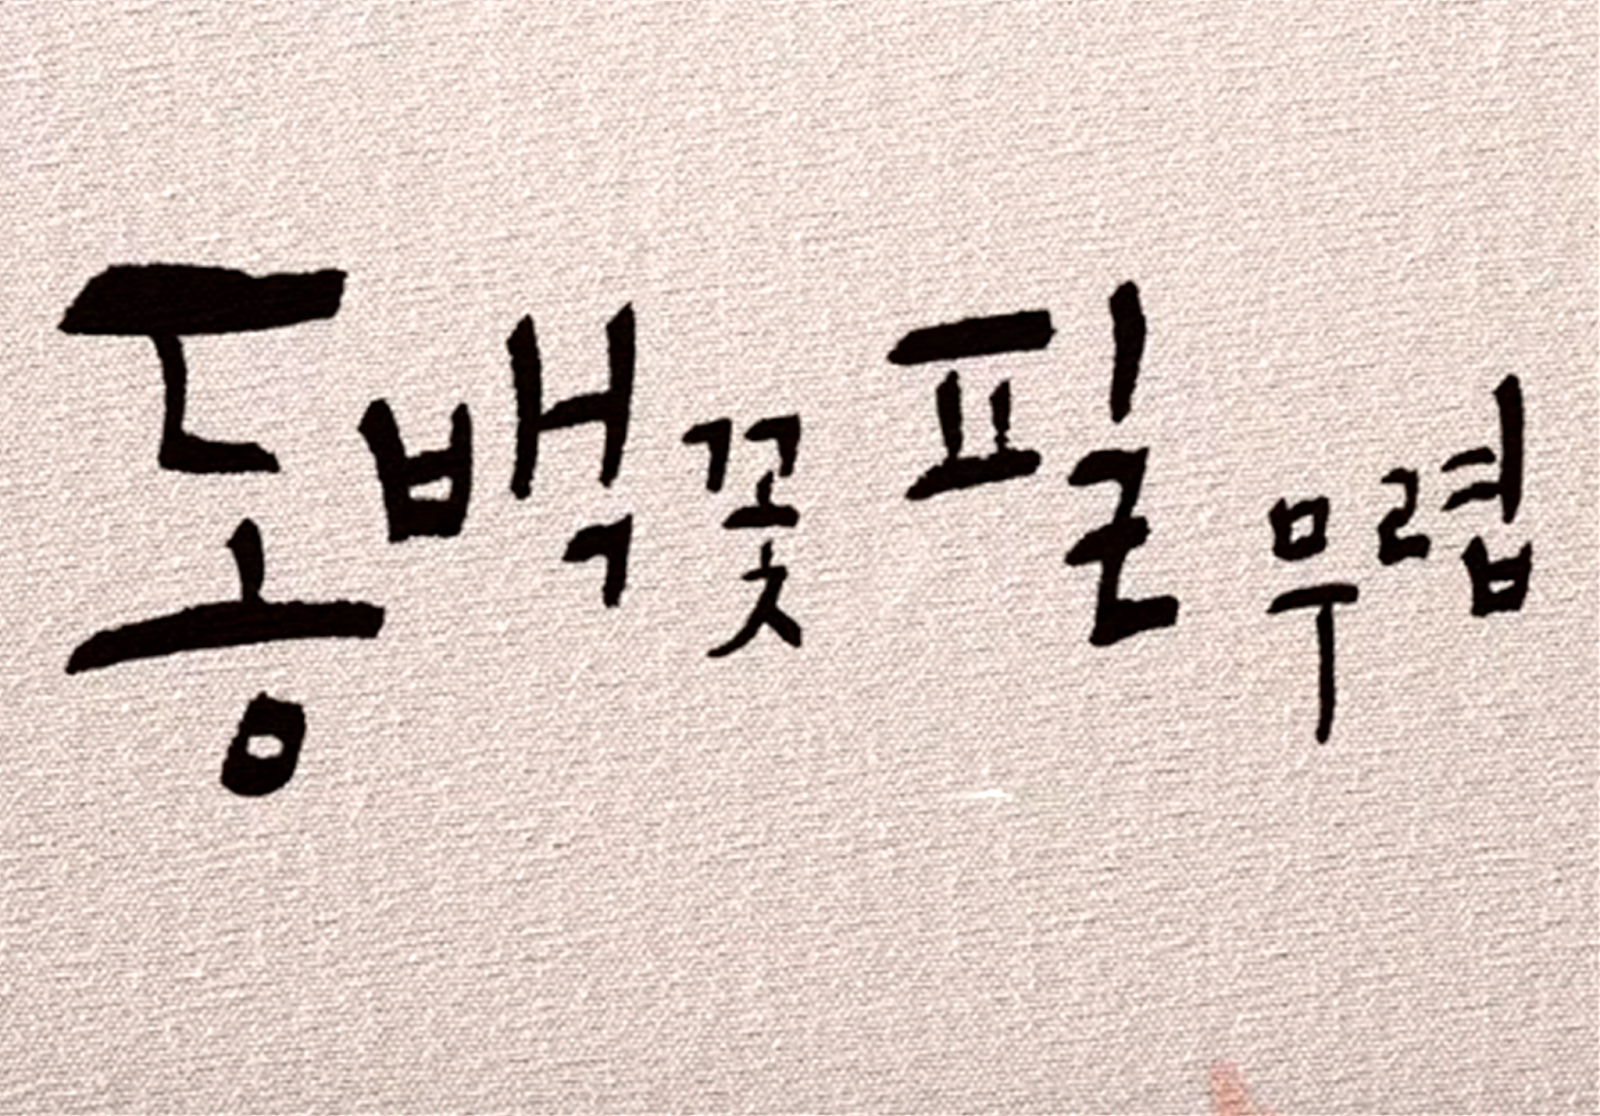 동백꽃 필 무렵